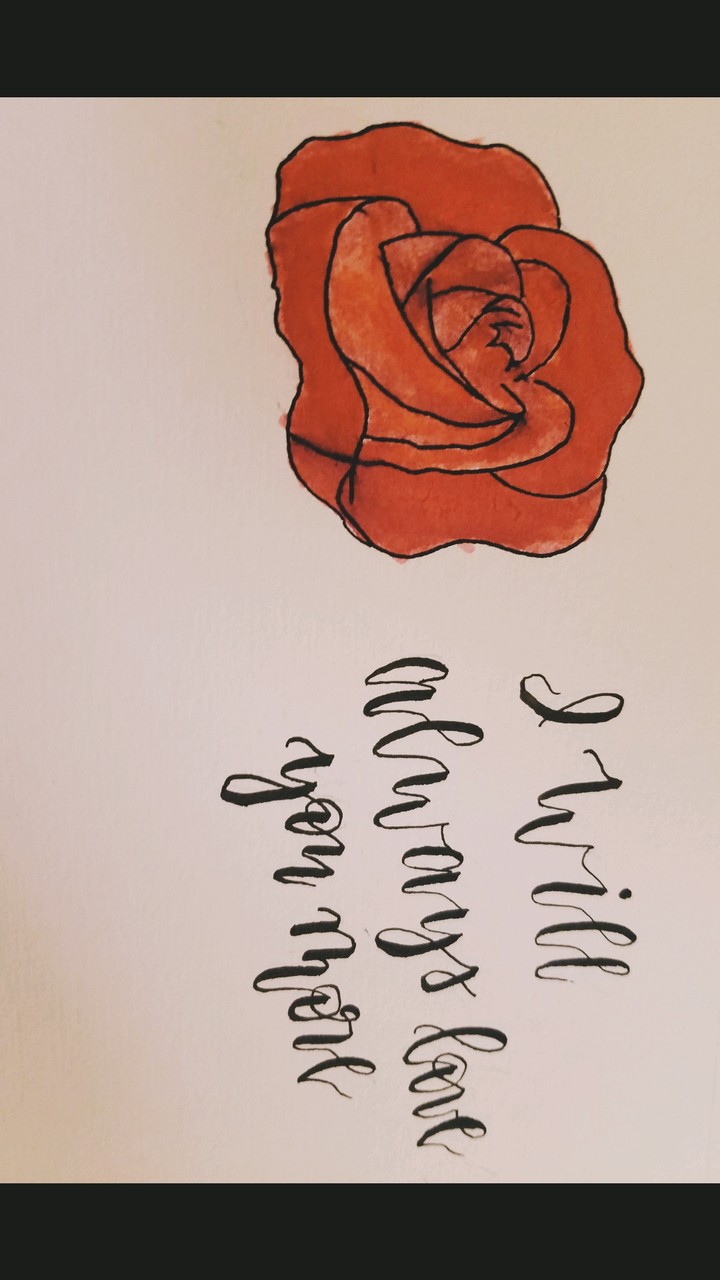 I will
always love
you more